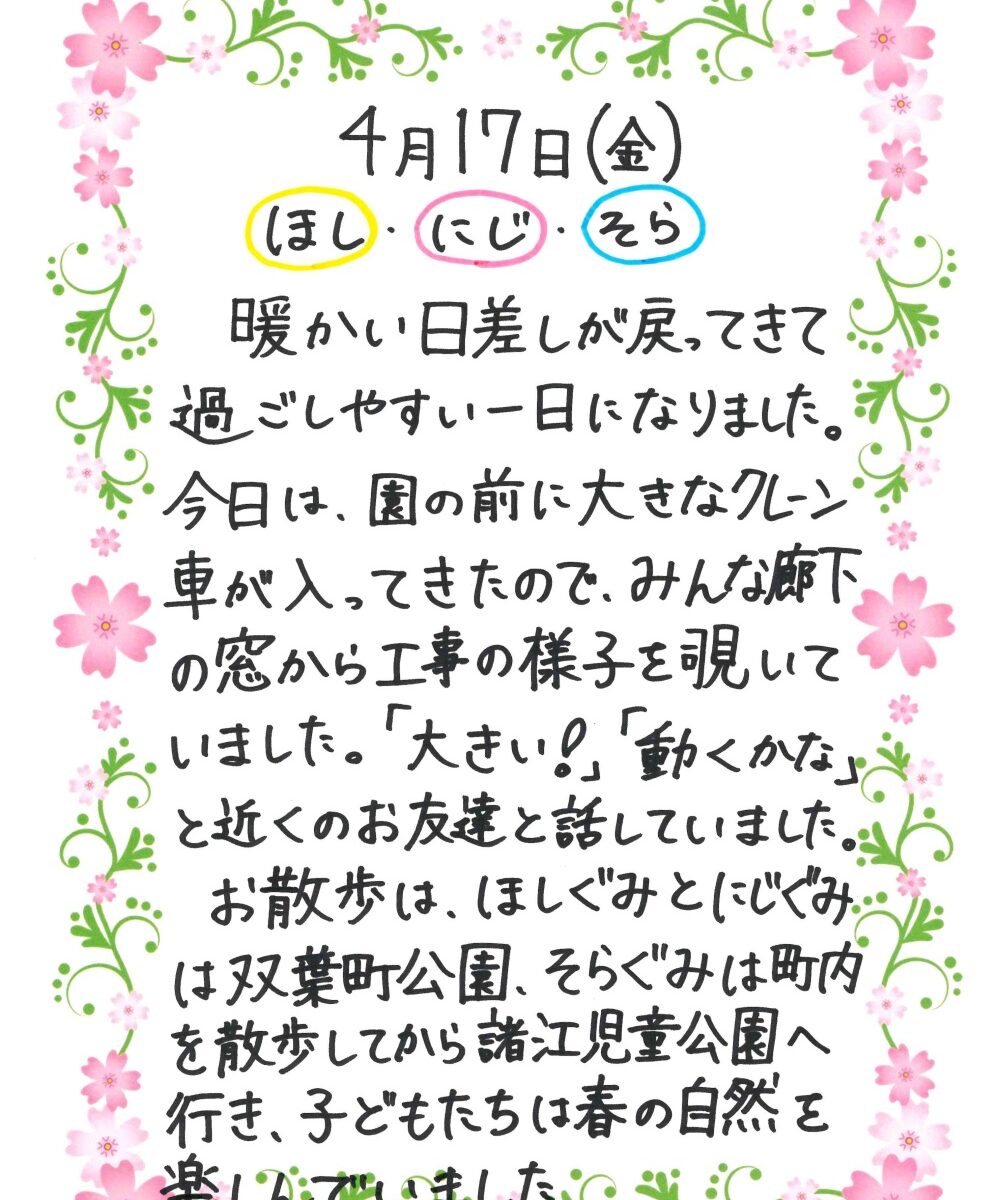 4月17日(金)
ほし・にじ・そら
暖かい日差しが戻ってきて
過ごしやすい一日になりました。
今日は、園の前に大きなクレーン
車が入ってきたので、みんな廊下
の窓から工事の様子を覗いて
いました。「大きい!」「動くかな」
と近くのお友達と話していました。
お散歩は、ほしぐみとにじぐみ
は双葉町公園、そらぐみは町内
を散歩してから諸江児童公園へ
行き、子どもたちは春の自然を
楽しんでいました